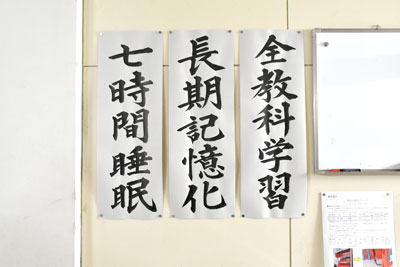 全教科学習
長期記憶化
七時間睡眠